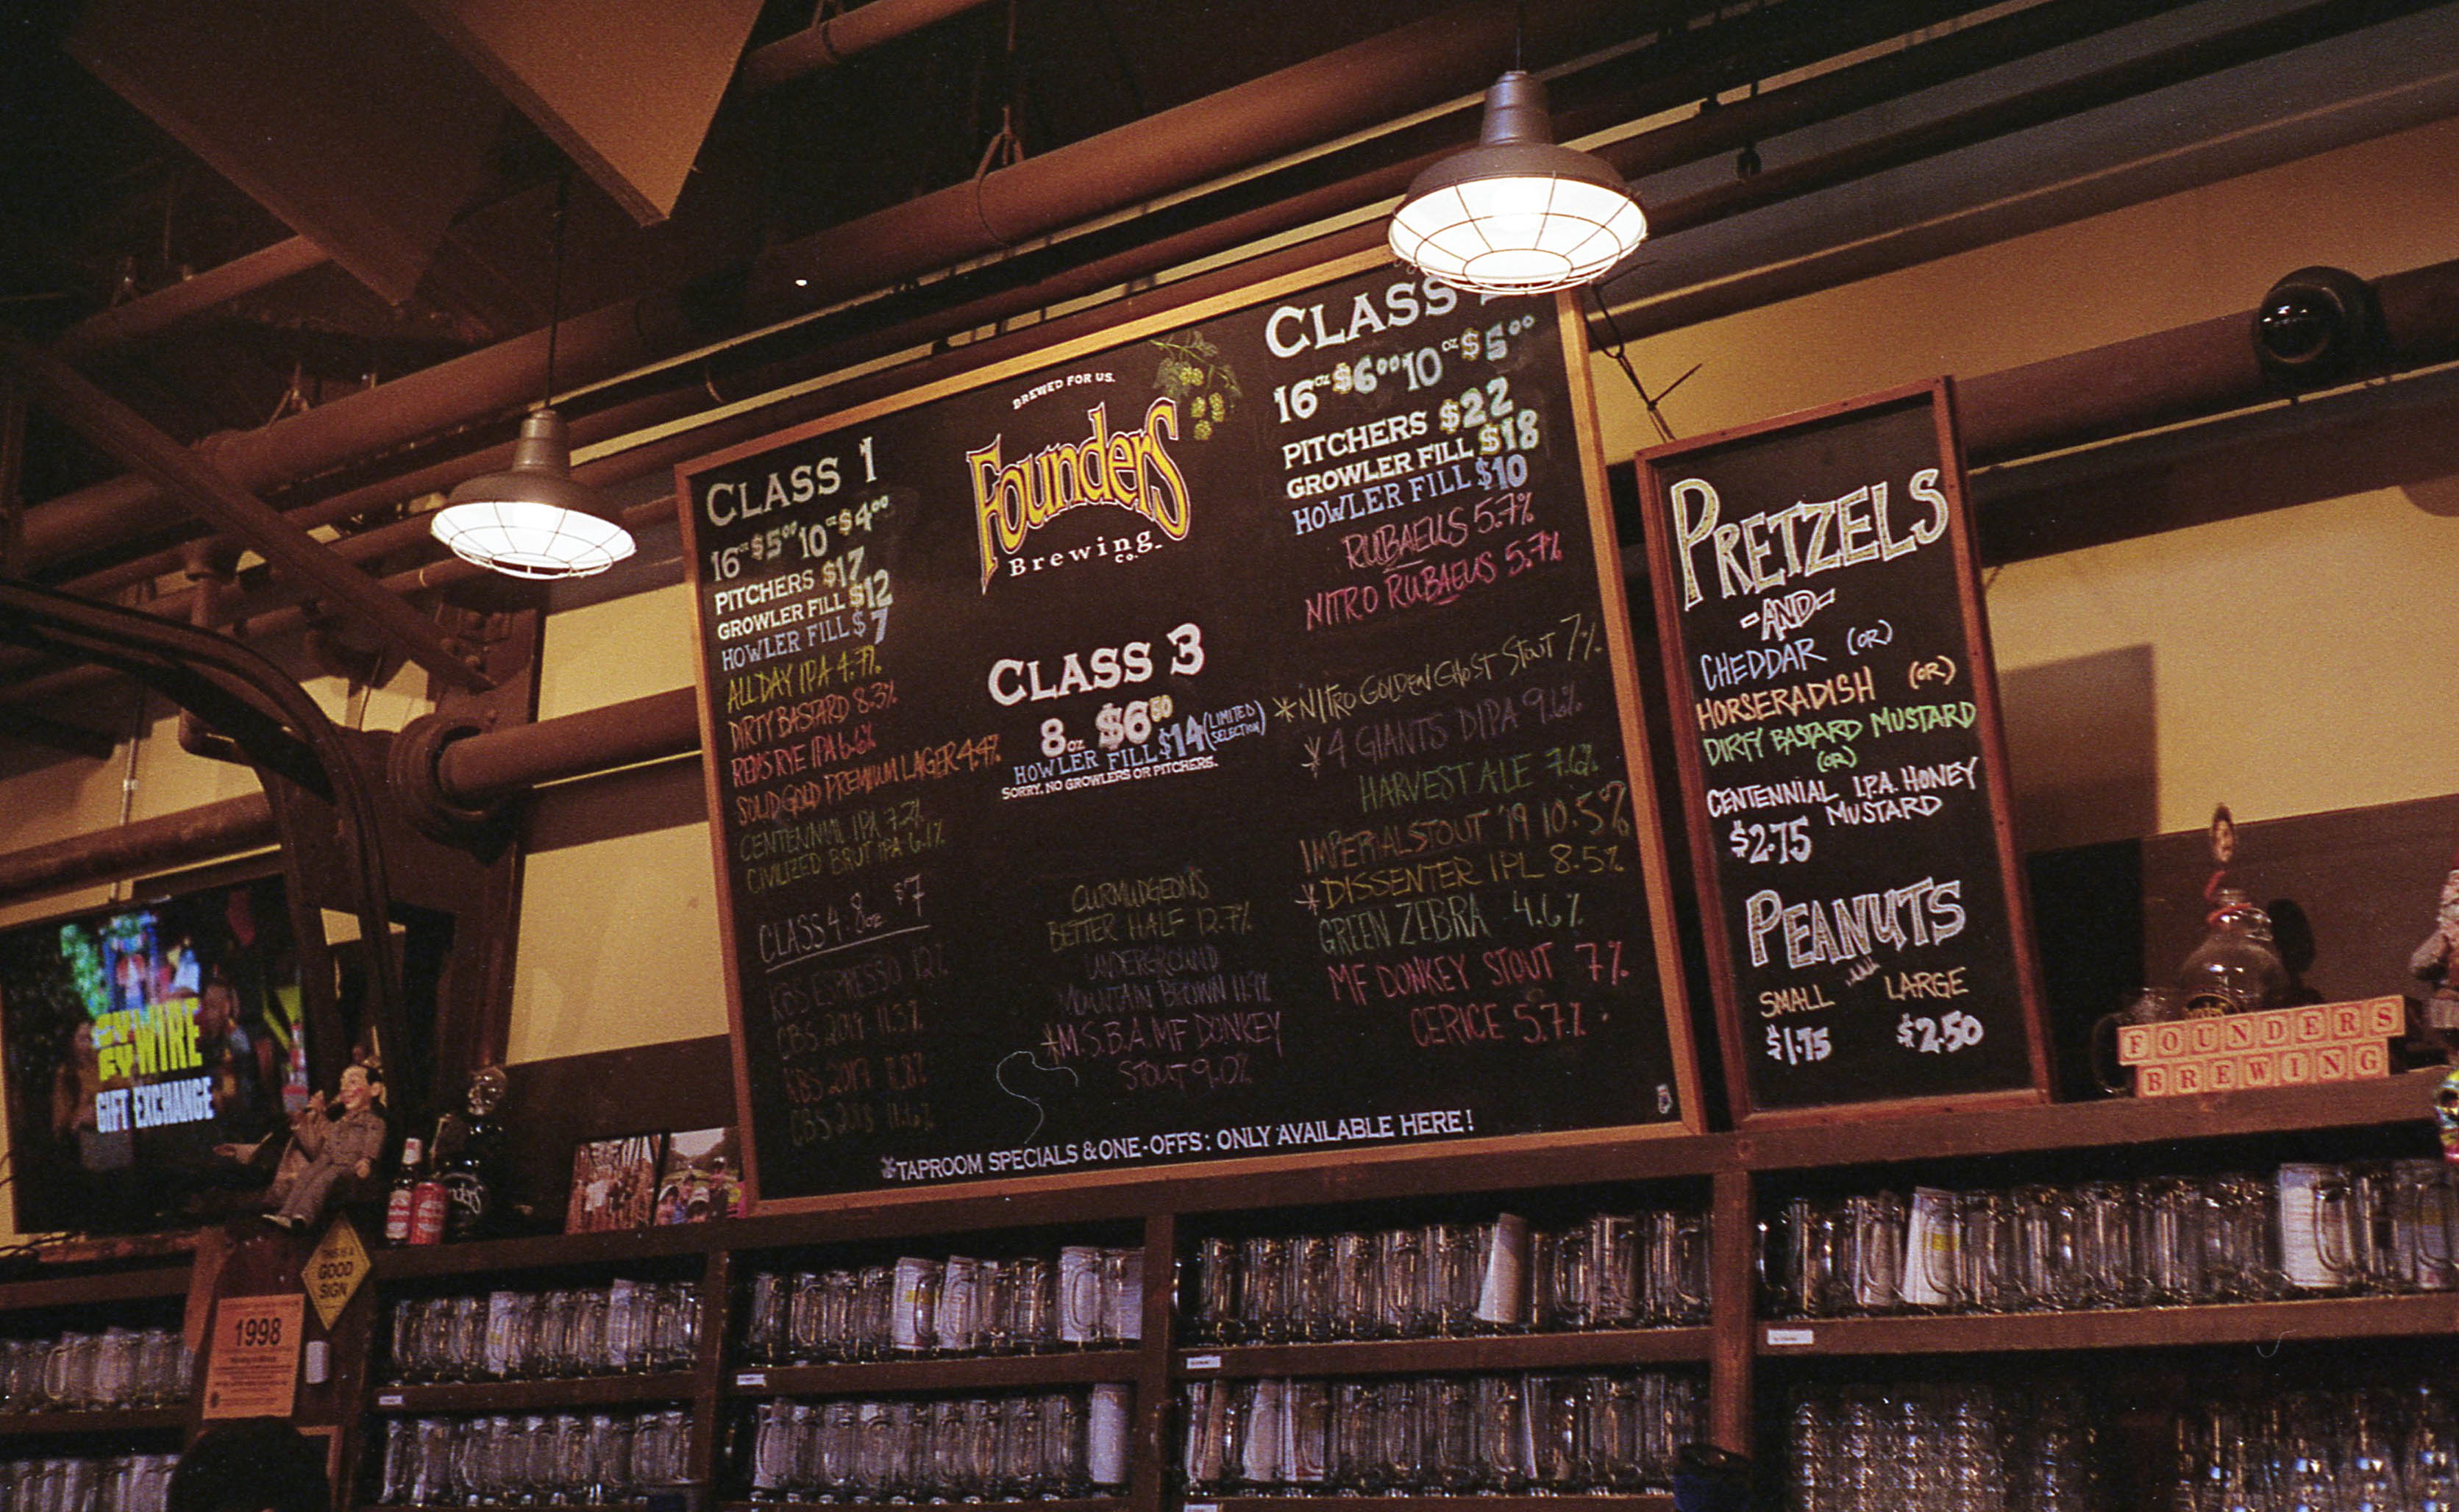 CLASS 1
16oz $5.00 10oz $4.00
PITCHERS $17
GROWLER FILL $12
HOWLER FILL $7
ALL DAY IPA 4.7%
DIRTY BASTARD 8.3%
RED'S RYE IPA 6.6%
SOLID GOLD PREMIUM LAGER 4.4%
CENTENNIAL IPA 7.2%
CIVILIZED BRUT IPA 6.1%
CLASS 4. 8oz $7
KBS ESPRESSO 12%
CBS 2019 11.5%
KBS 2019
CBS 2018 11.6%
BREWED FOR US.
Founders
Brewing
Co.
CLASS 3
8oz $6.50
HOWLER FILL $14 (LIMITED SELECTION)
SORRY, NO GROWLERS OR PITCHERS.
CURMUDGEON'S
BETTER HALF 12.7%
UNDERGROUND
MOUNTAIN BROWN 11.9%
*M.S.B.A. MF DONKEY
STOUT 9.0%
CLASS
16oz $6.00 10oz $5.00
PITCHERS $22
GROWLER FILL $18
HOWLER FILL $10
RUBAEUS 5.7%
NITRO RUBAEUS 5.7%
*NITRO GOLDEN GHOST STOUT 7%
*4 GIANTS DIPA 9.6%
HARVEST ALE 7.6%
IMPERIAL STOUT '19 10.5%
*DISSENTER IPL 8.5%
GREEN ZEBRA 4.6%
MF DONKEY STOUT 7%
CERICE 5.7%
*TAPROOM SPECIALS & ONE-OFFS: ONLY AVAILABLE HERE!
PRETZELS
-AND-
CHEDDAR (OR)
HORSERADISH (OR)
DIRTY BASTARD MUSTARD
(OR)
CENTENNIAL I.P.A. HONEY
MUSTARD
$2.75
PEANUTS
SMALL LARGE
$1.75 $2.50
FOUNDERS
BREWING
WIRE
GIFT EXCHANGE
THIS IS A
GOOD
SIGN
1998